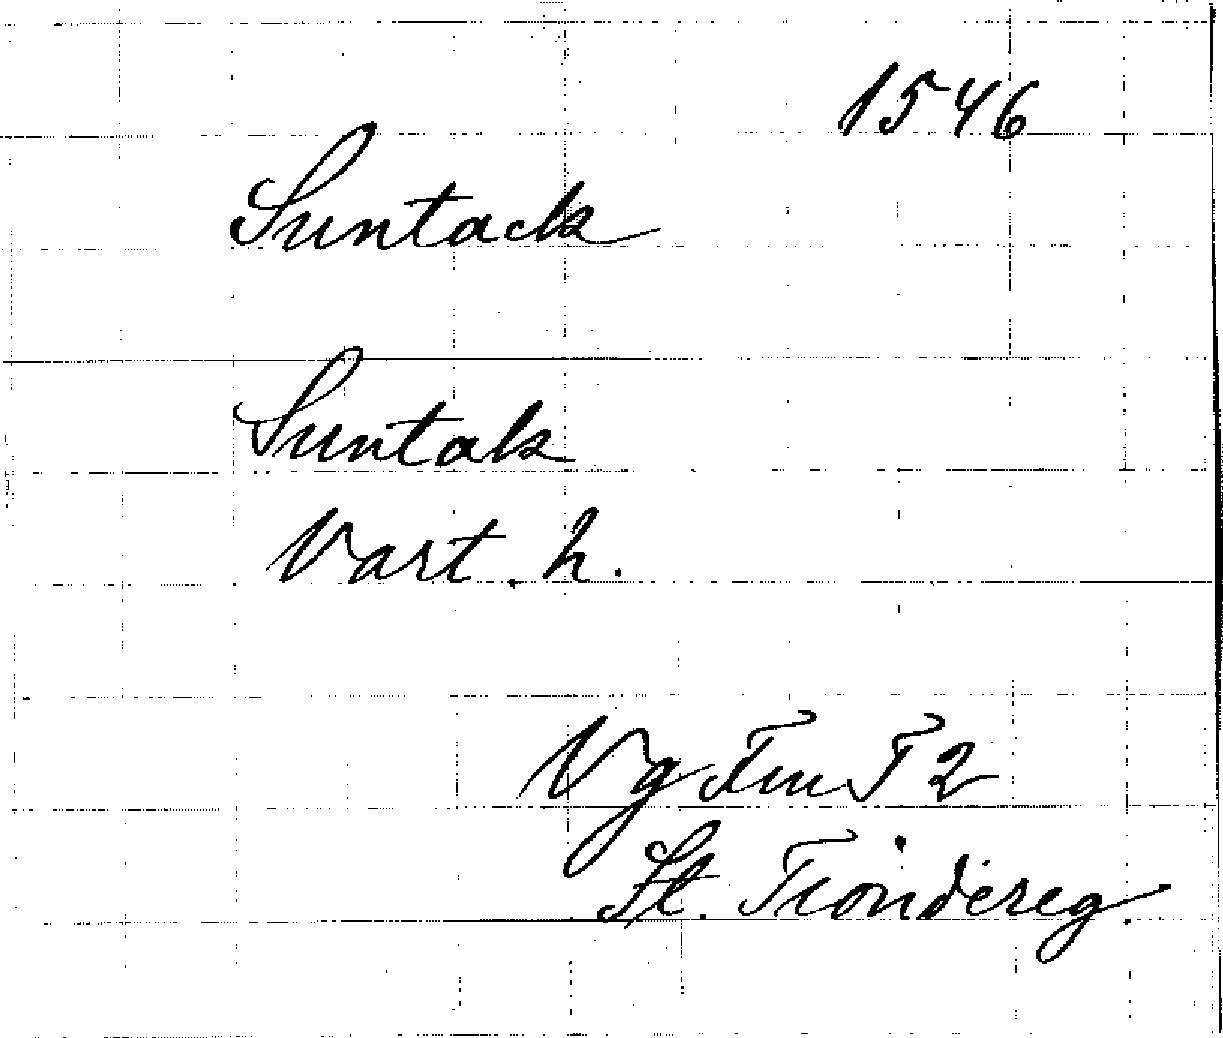 1546
Suntack
Suntak
Vart. h.
Vg Fm T 2
St. Tiondereg.